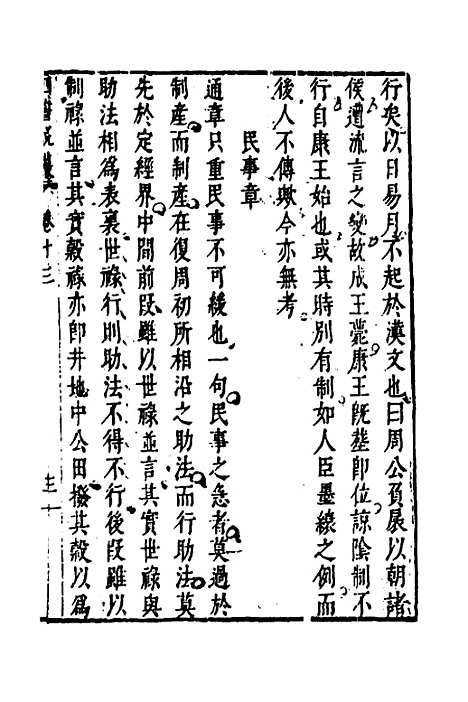 行矣以日易月不起於漢文也曰周公負扆以朝諸
侯遭流言之變故成王薨康王旣塟卽位諒陰制不
行自康王始也或其時別有制如人臣墨縗之例而
後人不傳歟今亦無考
民事章
通章只重民事不可緩也一句民事之急者莫過於
制產而制產在復周初所相沿之助法而行助法莫
先於定經界中間前段雖以世祿並言其實世祿與
助法相爲表裏世祿行則助法不得不行後段雖以
制祿並言其實穀祿亦卽井地中公田撥其穀以爲
四書 卷十三